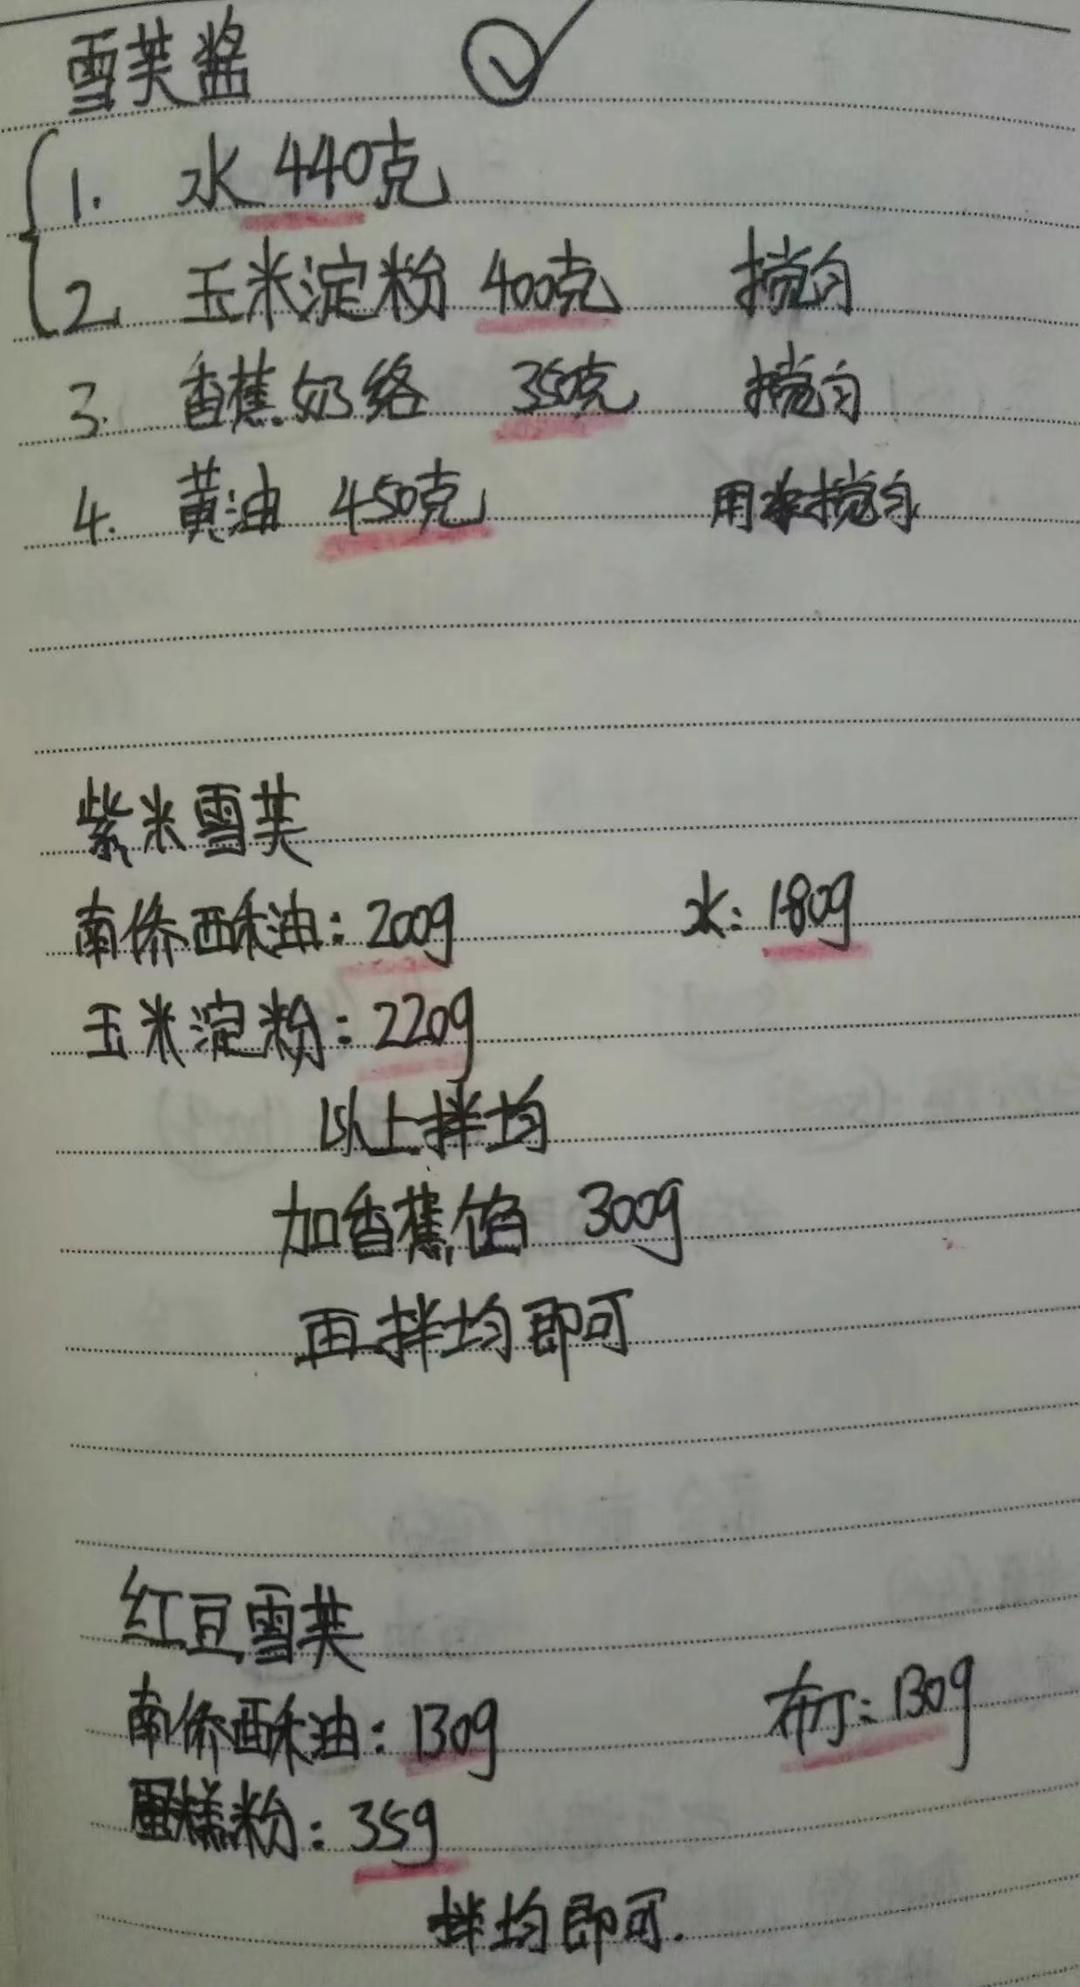 雪芙酱
1. 水 440克
2. 玉米淀粉 400克 搅匀
3. 香蕉奶络 350克 搅匀
4. 黄油 450克 用 搅匀
紫米雪芙
南侨酥油：200g 水：180g
玉米淀粉：220g
以上拌均
加香蕉馅 300g
再拌均即可
红豆雪芙
南侨酥油：130g 布丁：130g
蛋糕粉：35g
拌均即可.